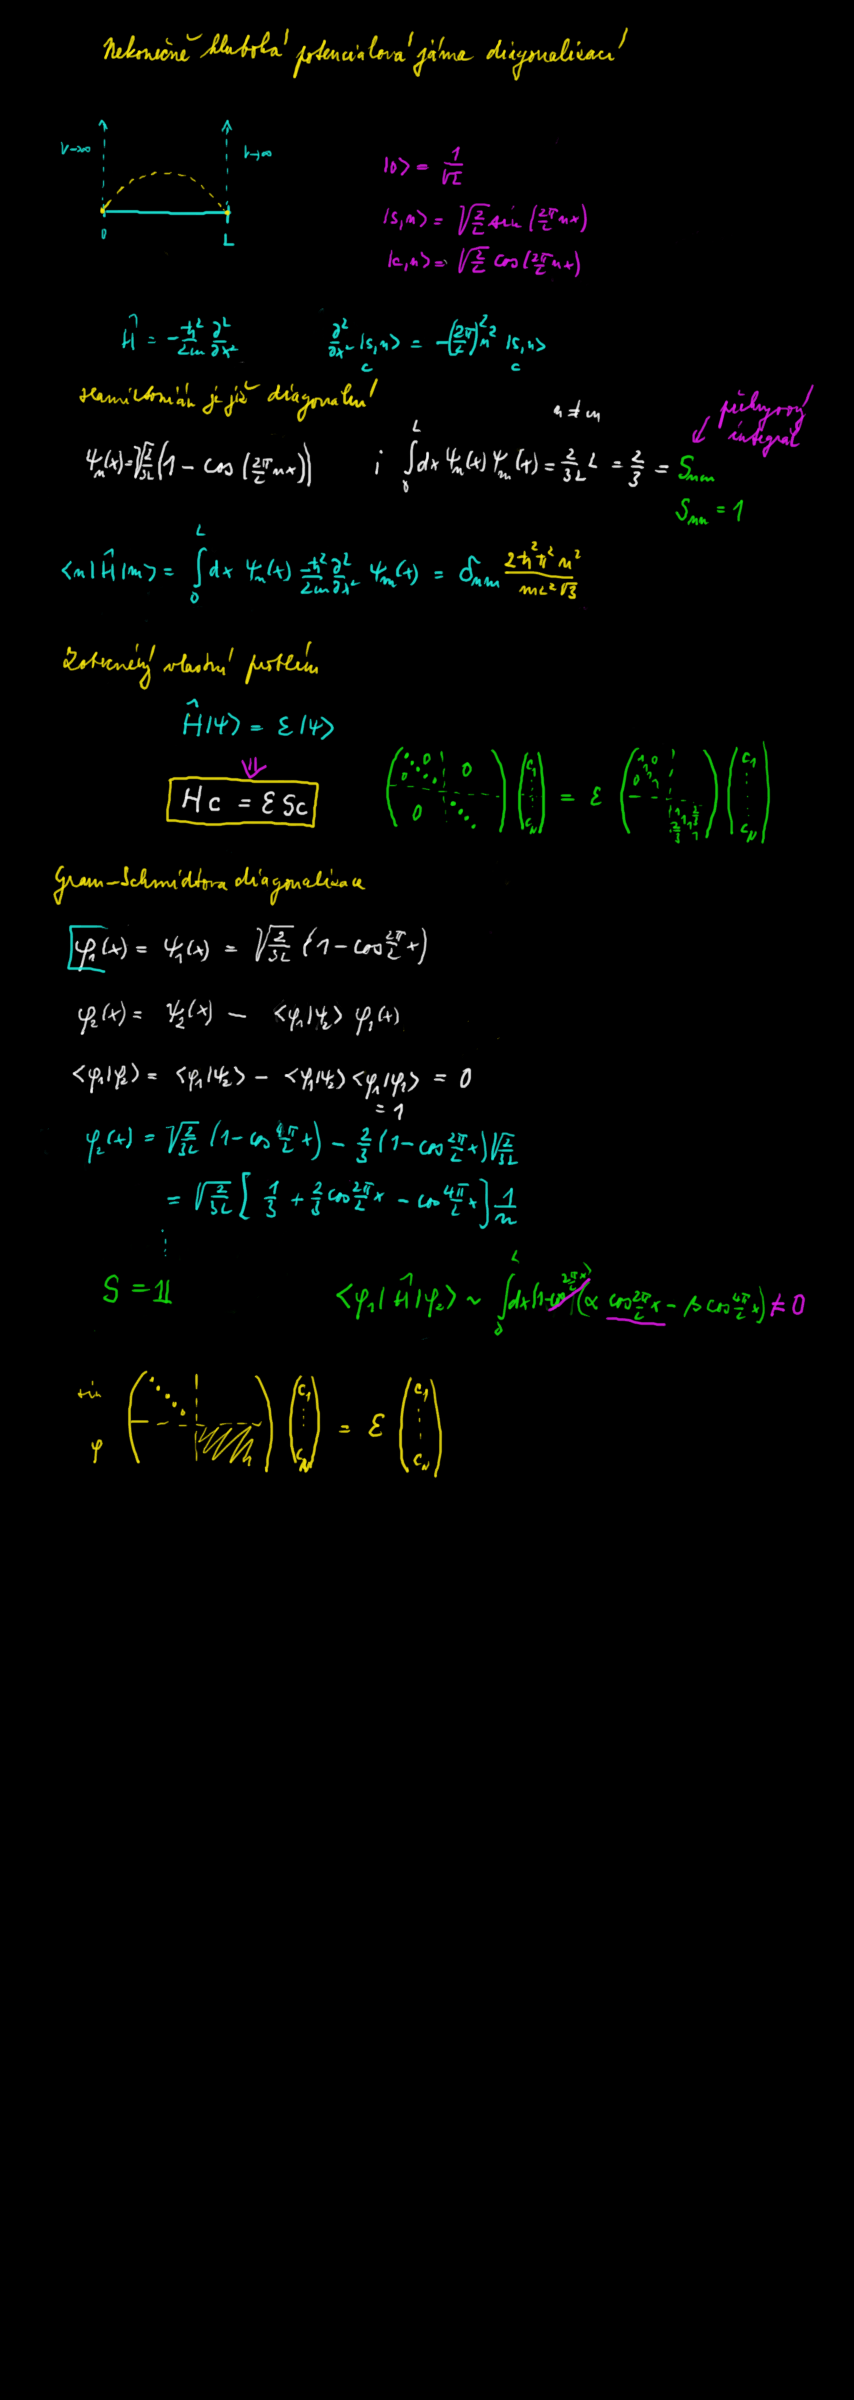 Nekonečně hluboká potenciálová jáma diagonalizací
V→∞ V→∞
0 L
|0> = 1/√L
|s,n> = √(2/L) sin (2π/L nx)
|c,n> = √(2/L) cos (2π/L nx)
Ĥ = -ħ²/2m ∂²/∂x² ∂²/∂x² |s,n> = -(2π/L)² n² |s,n>
c c
Hamiltonián je již diagonální
n ≠ m
překryvový integrál
ψₙ(x) = √(2/3L) (1 - cos (2π/L nx)) ; ∫₀ᴸ dx ψₙ(x) ψₘ(x) = 2/3L L = 2/3 = Sₙₘ
Sₙₙ = 1
<n|Ĥ|m> = ∫₀ᴸ dx ψₙ(x) -ħ²/2m ∂²/∂x² ψₘ(x) = δₙₘ 2ħ²π²n²/mL²√3
Zobecněný vlastní problém
Ĥ|ψ> = ε|ψ>
⇓
Hc = εSc
0 0 0 0 c₁ ⋮ c_N = ε 1 0 1 0 1 1 2/3 1 2/3 1 c₁ ⋮ c_N
Gram-Schmidtova diagonalizace
φ₁(x) = ψ₁(x) = √(2/3L) (1 - cos 2π/L x)
φ₂(x) = ψ₂(x) - <φ₁|ψ₂> φ₁(x)
<φ₁|φ₂> = <φ₁|ψ₂> - <φ₁|ψ₂> <φ₁|φ₁> = 0
= 1
φ₂(x) = √(2/3L) (1 - cos 4π/L x) - 2/3 (1 - cos 2π/L x) √(2/3L)
= √(2/3L) [1/3 + 2/3 cos 2π/L x - cos 4π/L x] 1/n
⋮
S = 𝟙 <φ₁|Ĥ|φ₂> ~ ∫₀ᴸ dx (1 - cos 2π/L x) (α cos 2π/L x - β cos 4π/L x) ≠ 0
sin
φ
c₁ ⋮ c_N = ε c₁ ⋮ c_N